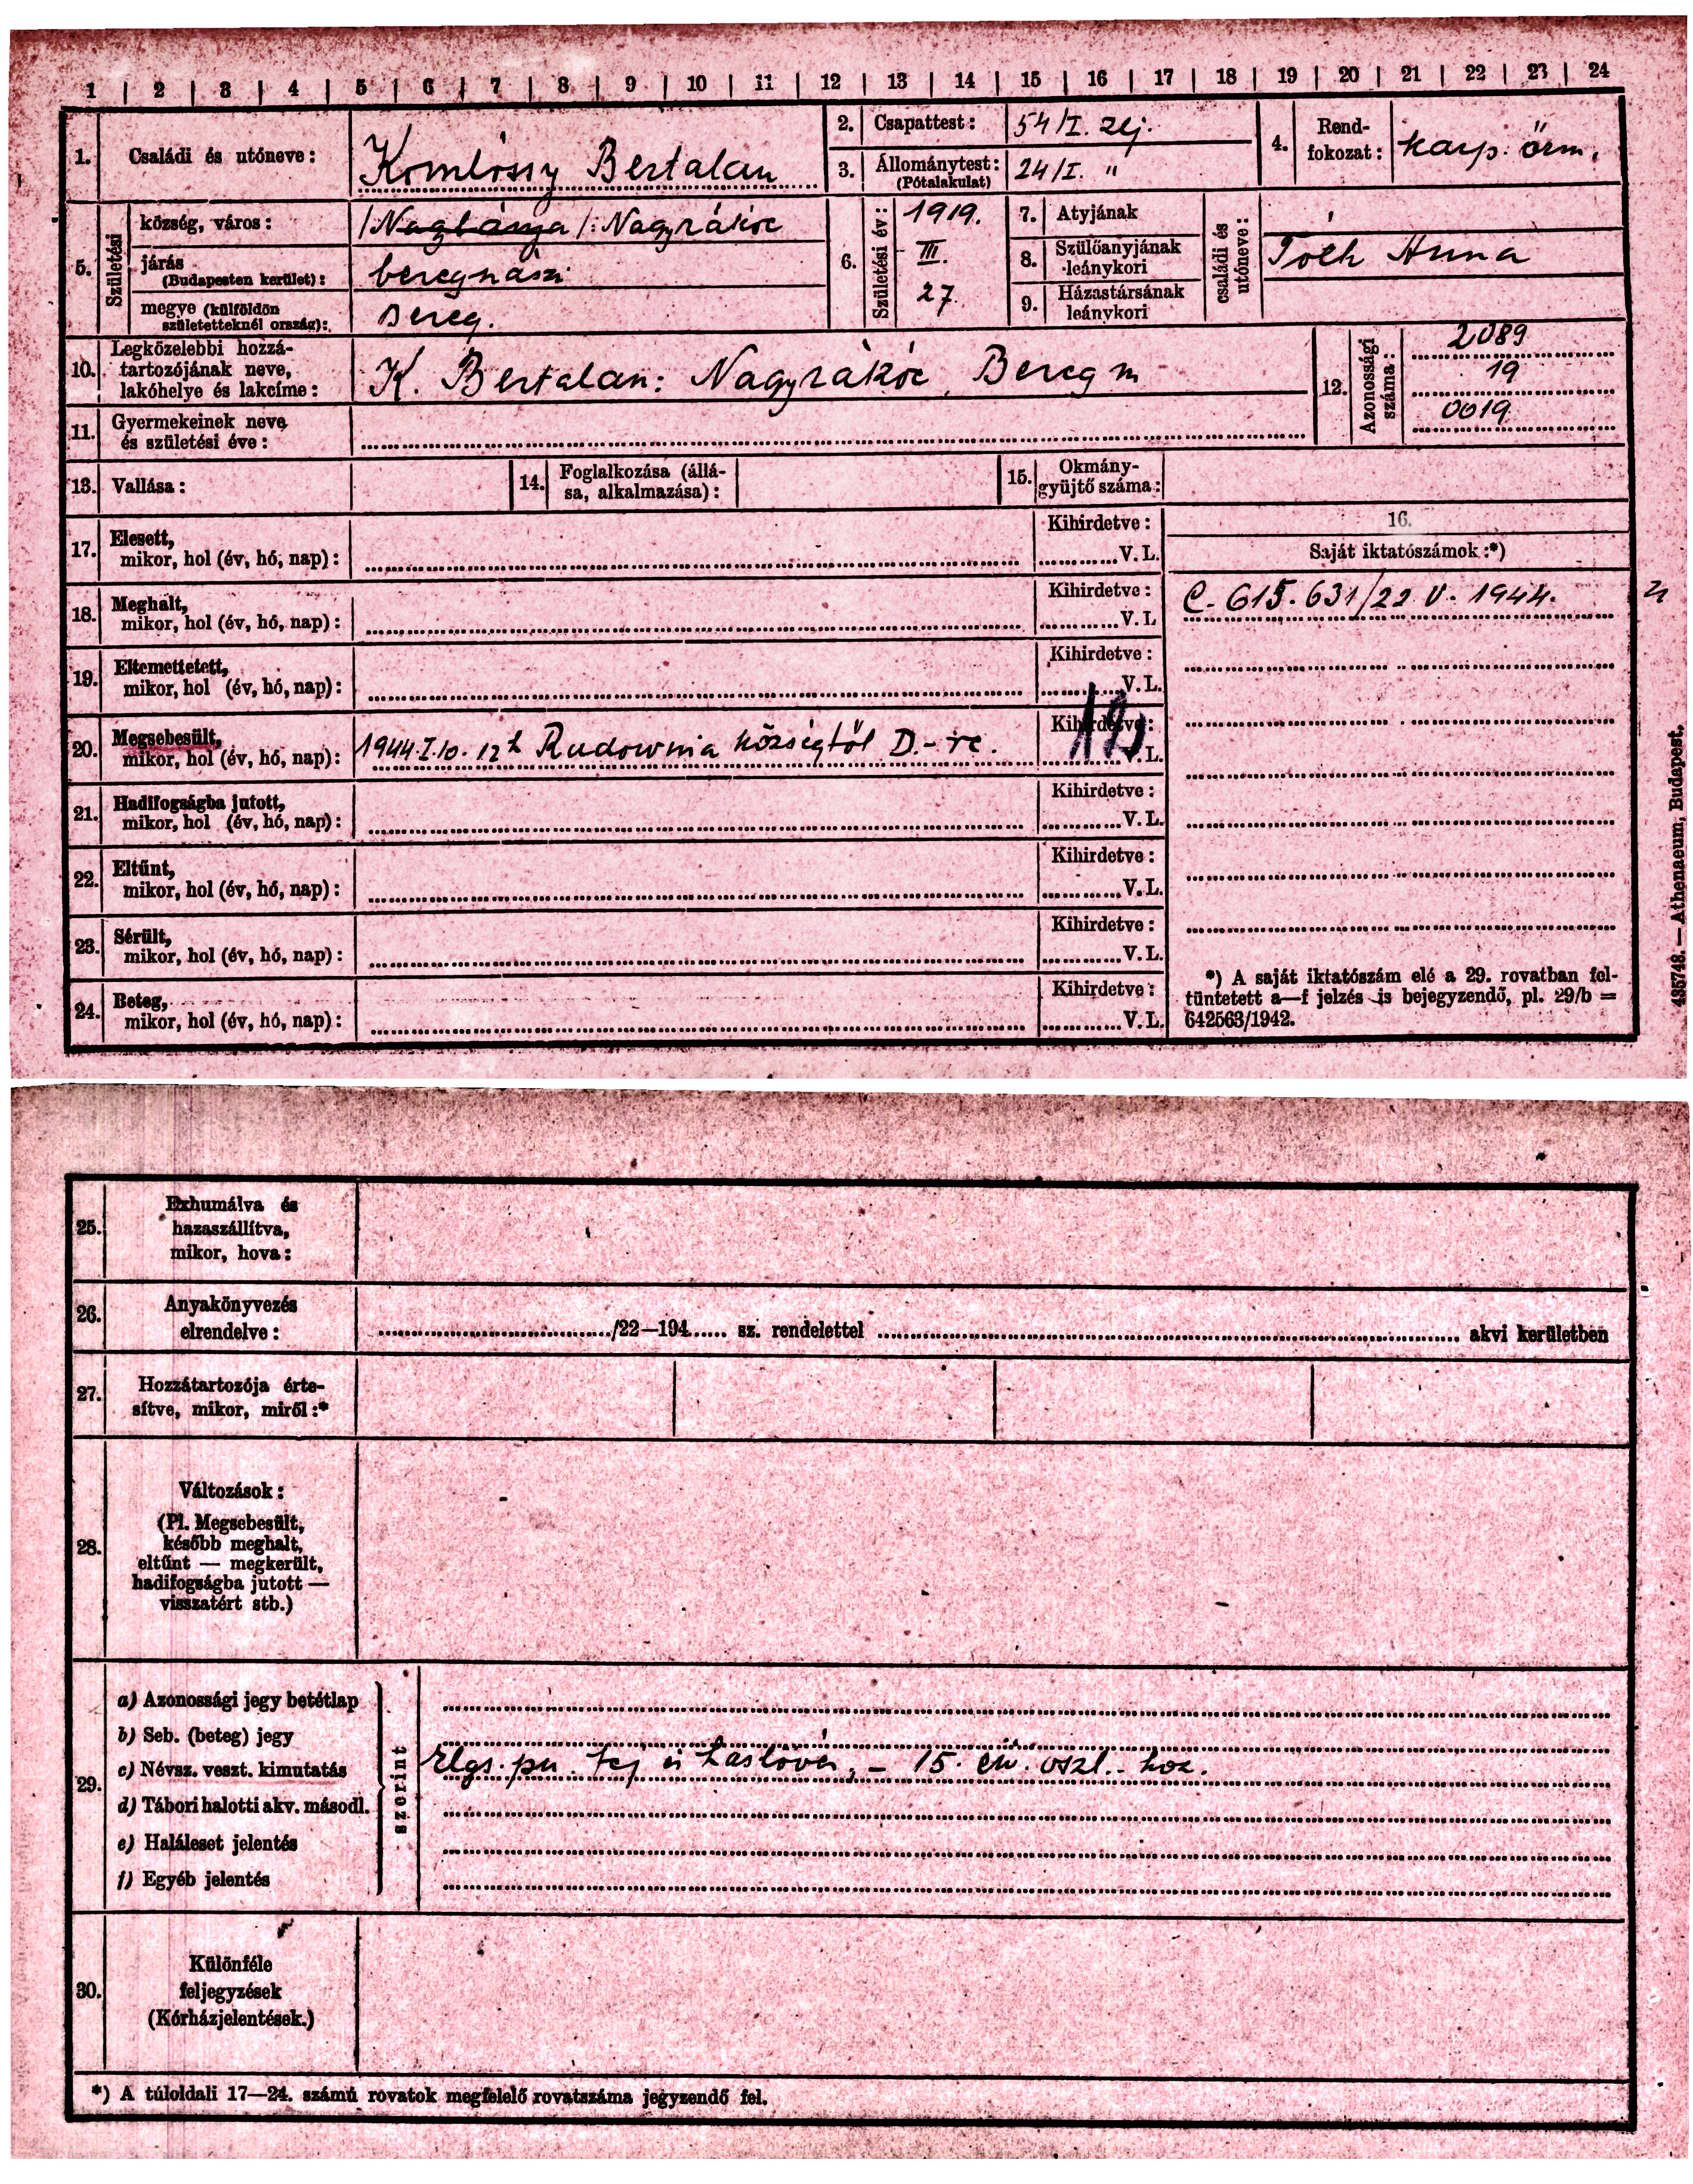 1 | 2 | 3 | 4 | 5 | 6 | 7 | 8 | 9 | 10 | 11 | 12 | 13 | 14 | 15 | 16 | 17 | 18 | 19 | 20 | 21 | 22 | 23 | 24
1. Családi és utóneve: Komlóssy Bertalan
2. Csapattest: 54/I. zlj.
3. Állománytest: (Pótalakulat) 24/I. "
4. Rend-
fokozat: karp. őrm.
5. Születési
község, város: /Nagbánya/: Nagyrákóc
járás
(Budapesten kerület): beregnászi
megye (külföldön
születetteknél ország): Bereg.
6. Születési év: 1919.
III.
27.
7. Atyjának
8. Szülőanyjának
leánykori
9. Házastársának
leánykori
családi és
utóneve:
Tóth Anna
10. Legközelebbi hozzá-
tartozójának neve,
lakóhelye és lakcíme: K. Bertalan: Nagyrákóc Bereg m
11. Gyermekeinek neve
és születési éve:
12. Azonossági
száma:
2089
19
0019
13. Vallása:
14. Foglalkozása (állá-
sa, alkalmazása):
15. Okmány-
gyüjtő száma:
16.
Saját iktatószámok:*)
C. 615.631/22 V. 1944.
17. Elesett,
mikor, hol (év, hó, nap):
Kihirdetve:
V. L.
18. Meghalt,
mikor, hol (év, hó, nap):
Kihirdetve:
V. L
19. Eltemettetett,
mikor, hol (év, hó, nap):
Kihirdetve:
V. L.
20. Megsebesült,
mikor, hol (év, hó, nap): 1944.I.10. 12h Rudownia községtől D.-re.
Kihirdetve:
V. L.
21. Hadifogságba jutott,
mikor, hol (év, hó, nap):
Kihirdetve:
V. L.
22. Eltűnt,
mikor, hol (év, hó, nap):
Kihirdetve:
V. L.
23. Sérült,
mikor, hol (év, hó, nap):
Kihirdetve:
V. L.
24. Beteg,
mikor, hol (év, hó, nap):
Kihirdetve:
V. L.
*) A saját iktatószám elé a 29. rovatban fel-
tüntetett a—f jelzés is bejegyzendő, pl. 29/b =
642563/1942.
435748. — Athenaeum, Budapest.
25. Exhumálva és
hazaszállítva,
mikor, hova:
26. Anyakönyvezés
elrendelve: /22—194 sz. rendelettel akvi kerületben
27. Hozzátartozója érte-
sítve, mikor, miről:*
28. Változások:
(Pl. Megsebesült,
később meghalt,
eltűnt — megkerült,
hadifogságba jutott —
visszatért stb.)
29.
a) Azonossági jegy betétlap
b) Seb. (beteg) jegy
c) Névsz. veszt. kimutatás
d) Tábori halotti akv. másodl.
e) Haláleset jelentés
f) Egyéb jelentés
szerint
15. eü. oszl.-hoz.
30. Különféle
feljegyzések
(Kórházjelentések.)
*) A túloldali 17—24. számú rovatok megfelelő rovatszáma jegyzendő fel.